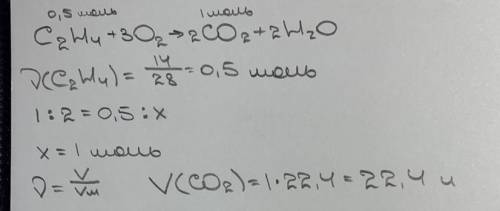 0,5 моль 1 моль
C₂H₄ + 3O₂ → 2CO₂ + 2H₂O
ν(C₂H₄) = 14/28 = 0,5 моль
1 : 2 = 0,5 : x
x = 1 моль
ν = V/Vм V(CO₂) = 1 · 22,4 = 22,4 л